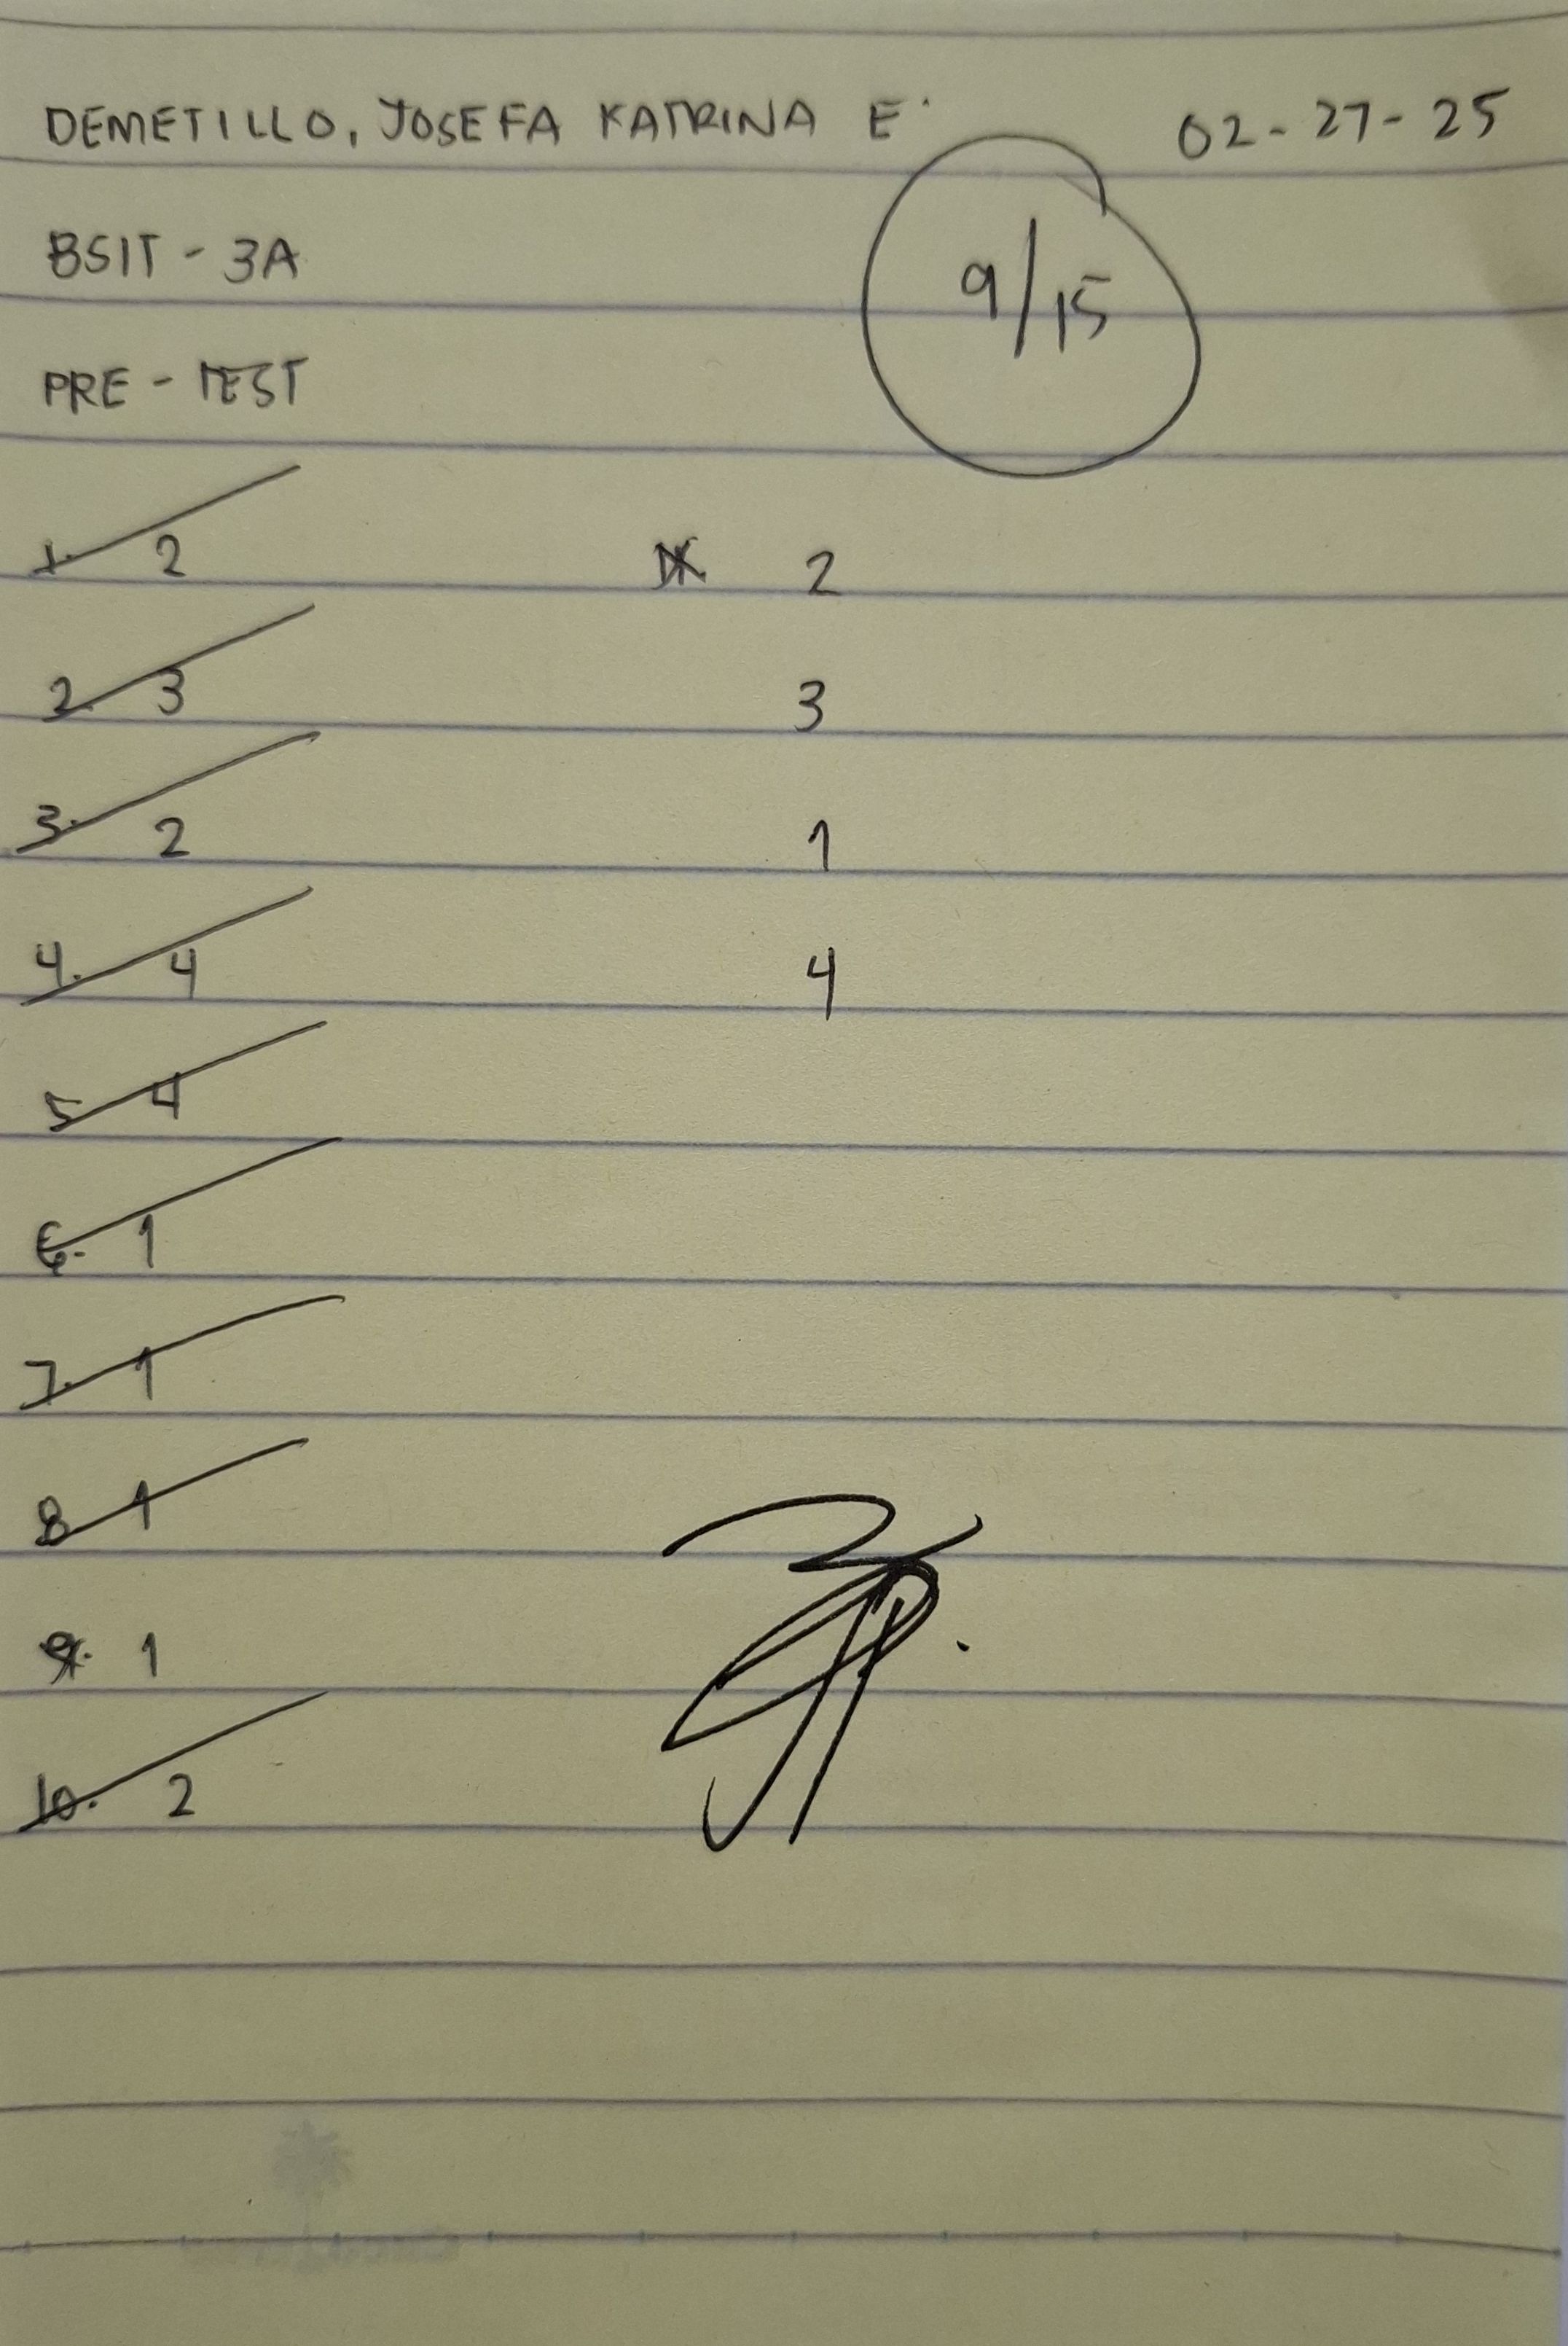 DEMETILLO, JOSEFA KATRINA E. 02-27-25
BSIT - 3A
9/15
PRE-TEST
1. 2
2. 3
3. 2
4. 4
5 4
6. 1
7. 1
8 1
9. 1
10. 2
2
3
1
4